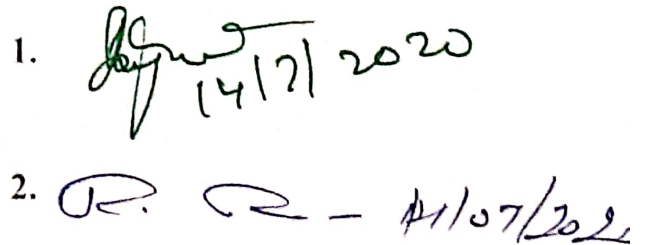 1. 14/7/2020
2. R. R - 14/07/202